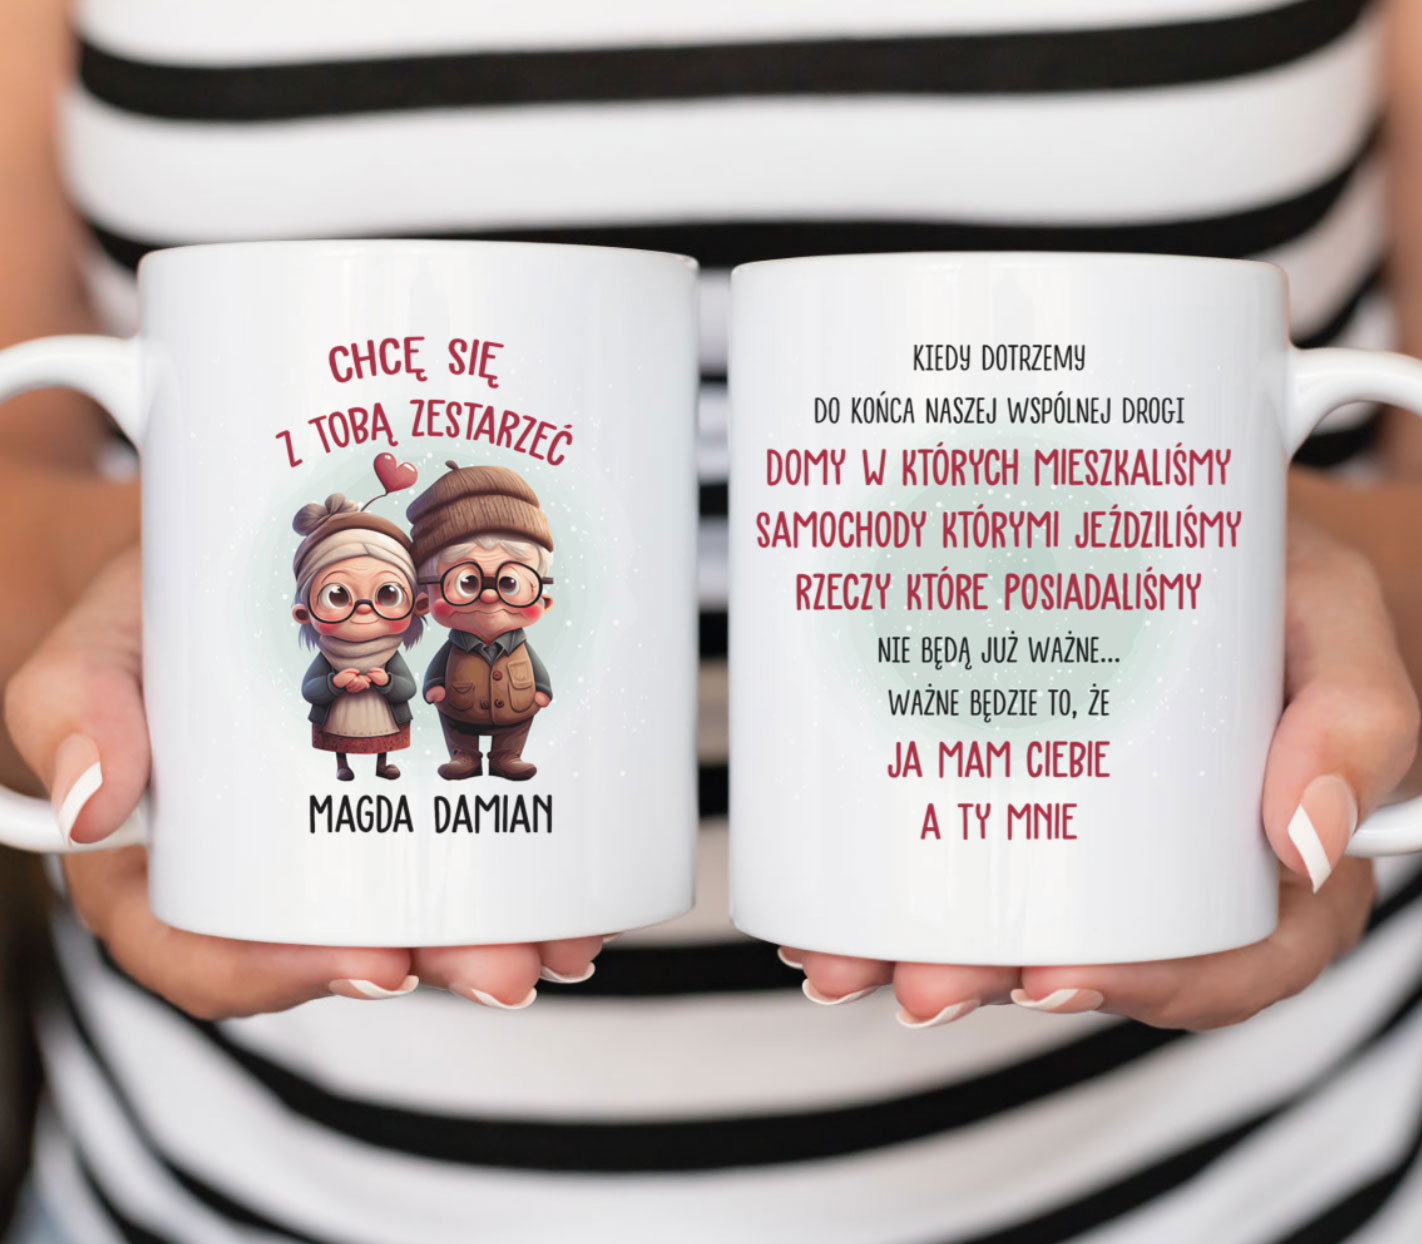 CHCĘ SIĘ
Z TOBĄ ZESTARZEĆ
MAGDA DAMIAN
KIEDY DOTRZEMY
DO KOŃCA NASZEJ WSPÓLNEJ DROGI
DOMY W KTÓRYCH MIESZKALIŚMY
SAMOCHODY KTÓRYMI JEŹDZILIŚMY
RZECZY KTÓRE POSIADALIŚMY
NIE BĘDĄ JUŻ WAŻNE...
WAŻNE BĘDZIE TO, ŻE
JA MAM CIEBIE
A TY MNIE